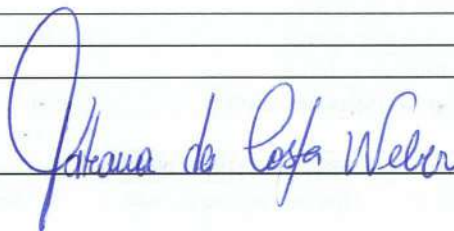 Tatiana da Costa Weber